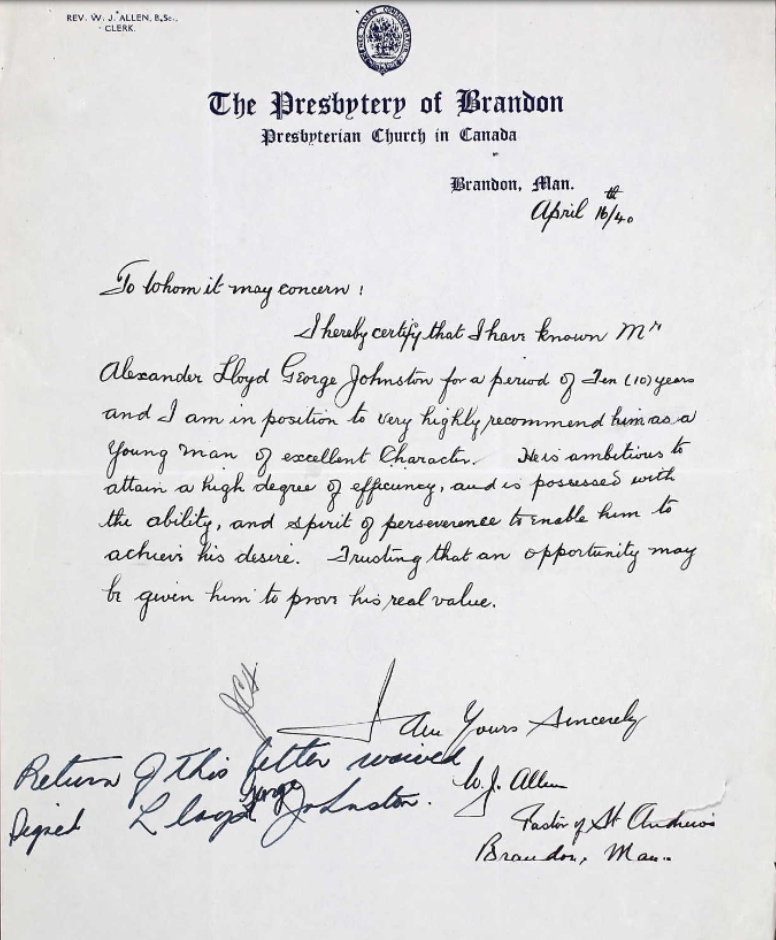 REV. W. J. ALLEN, B.Sc.,
CLERK.
The Presbytery of Brandon
Presbyterian Church in Canada
Brandon, Man.
April 16th/40
To Whom it may concern:
I hereby certify that I have known Mr
Alexander Lloyd George Johnston for a period of Ten (10) years
and I am in position to very highly recommend him as a
Young Man of excellent Character. He is ambitious to
attain a high degree of efficiency, and is possessed with
the ability, and spirit of perseverence to enable him to
achieve his desire. Trusting that an opportunity may
be given him to prove his real value.
I am Yours Sincerely
W. J. Allen
Pastor of St Andrew's
Brandon, Man.
Return of this letter waived
Signed Lloyd George Johnston.